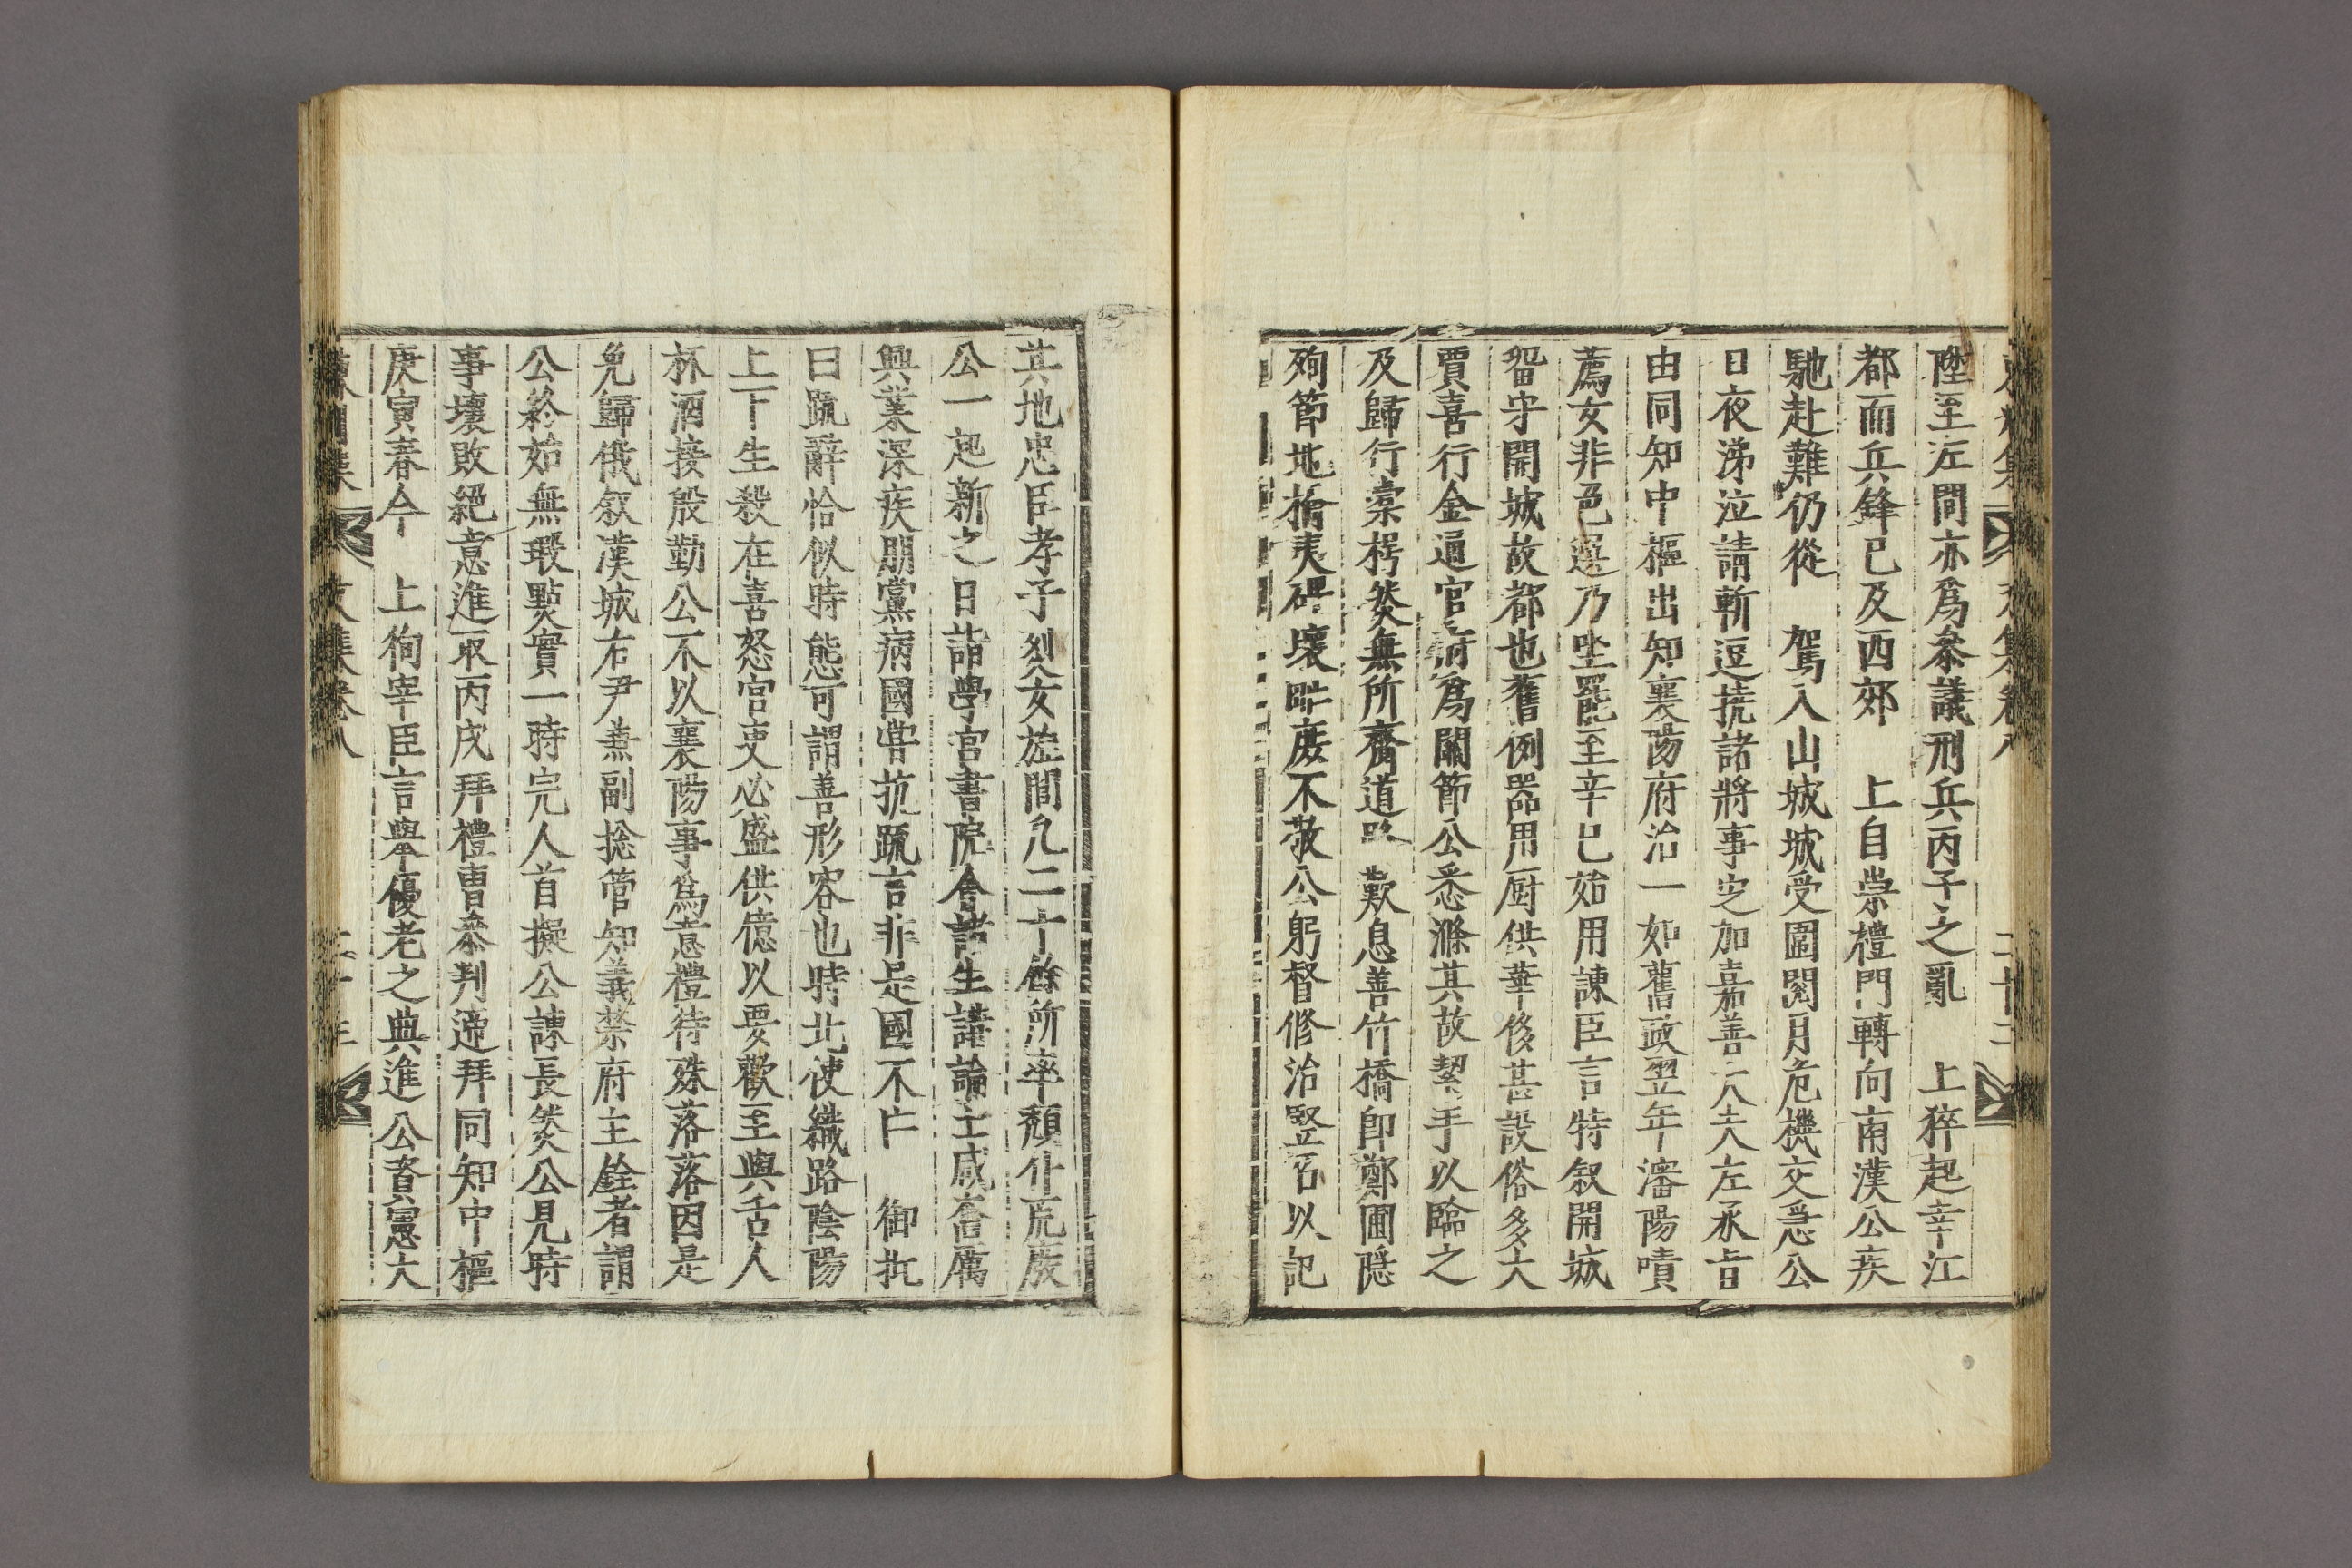 陞至左閤亦爲叅議刑兵丙子之亂　上猝起幸江
都而兵鋒已及西郊　上自崇禮門轉向南漢公疾
馳赴難仍從　駕入山城城受圍閱月危機交急公
日夜涕泣請斬逗撓諸將事定加嘉善大夫左承旨
由同知中樞出知襄陽府治一如舊政翌年瀋陽嘖
薦女非色選乃坐罷至辛巳始用諫臣言特叙開城
留守開城故都也舊例器用厨供華侈甚設俗多大
賈喜行金通官府爲關節公悉滌其故絜手以臨之
及歸行槖枵然無所齎道路歎息善竹橋卽鄭圃隱
殉節地搶夷碑壞畔庋不敬公躬督修治竪石以記
其地忠臣孝子烈女旌閭凡二十餘所率頹仆荒廢
公一起新之日詣學宮書院會諸生講論士咸奮厲
興業深疾朋黨病國嘗抗疏言非是國不亡　御批
曰疏辭恰似時態可謂善形容也時北使織路陰陽
上下生殺在喜怒宮吏必盛供億以要歡至與舌人
杯酒接殷勤公不以襄陽事爲意禮待殊落落因是
免歸俄叙漢城右尹兼副捴管知義禁府主銓者謂
公終始無瑕㸃實一時完人首擬公諫長然公見時
事壞敗絕意進取丙戌拜禮曹叅判遞拜同知中樞
庚寅春今　上徇宰臣言擧優老之典進公資憲大
文集卷八